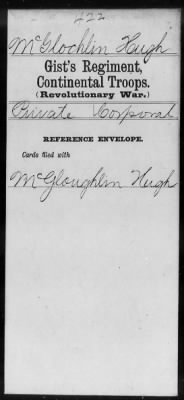 422
McGlochlin Hugh
Gist's Regiment,
Continental Troops.
(Revolutionary War.)
Private Corporal
REFERENCE ENVELOPE.
Cards filed with
McGloughlin Hugh